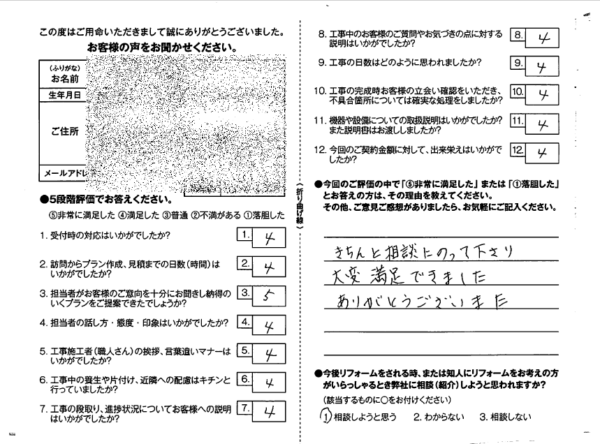 この度はご用命いただきまして誠にありがとうございました。
お客様の声をお聞かせください。
(ふりがな)
お名前
生年月日
ご住所
メールアドレ
●5段階評価でお答えください。
⑤非常に満足した ④満足した ③普通 ②不満がある ①落胆した
1. 受付時の対応はいかがでしたか?
1. 4
2. 訪問からプラン作成、見積までの日数(時間)は
いかがでしたか?
2. 4
3. 担当者がお客様のご意向を十分にお聞きし納得の
いくプランをご提案できたでしょうか?
3. 5
4. 担当者の話し方・態度・印象はいかがでしたか?
4. 4
5. 工事施工者(職人さん)の挨拶、言葉遣いマナーは
いかがでしたか?
5. 4
6. 工事中の養生や片付け、近隣への配慮はキチンと
行っていましたか?
6. 4
7. 工事の段取り、進捗状況についてお客様への説明
はいかがでしたか?
7. 4
(折り曲げ線)
8. 工事中のお客様のご質問やお気づきの点に対する
説明はいかがでしたか?
8. 4
9. 工事の日数はどのように思われましたか?
9. 4
10. 工事の完成時お客様の立会い確認をいただき、
不具合箇所については確実な処理をしましたか?
10. 4
11. 機器や設備についての取扱説明はいかがでしたか?
また説明書はお渡ししましたか?
11. 4
12. 今回のご契約金額に対して、出来栄えはいかがでしたか?
12. 4
●今回のご評価の中で「⑤非常に満足した」または「①落胆した」
とお答えの方は、その理由を教えてください。
その他、ご意見ご感想がありましたら、お気軽にご記入ください。
きちんと相談にのって下さり
大変満足できました
ありがとうございました
●今後リフォームをされる時、または知人にリフォームをお考えの方
がいらっしゃるとき弊社に相談(紹介)しようと思われますか?
(該当するものに○をお付けください)
1. 相談しようと思う 2. わからない 3. 相談しない